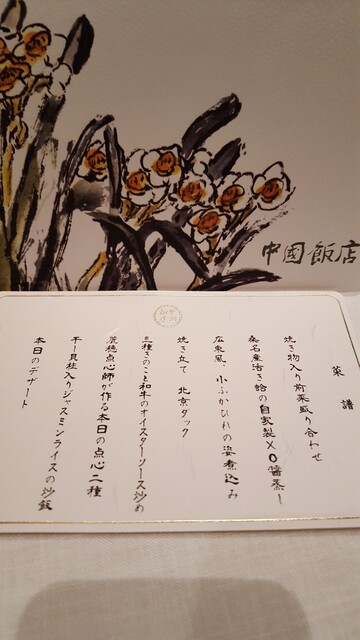 中國飯店
菜譜
焼き物入り前菜盛り合わせ
桑名産活き蛤の自家製XO醤蒸し
広東風、小ふかひれの姿煮込み
焼き立て 北京ダック
三種きのこと和牛のオイスターソース炒め
麗穂点心師が作る本日の点心二種
干し貝柱入りジャスミンライスの炒飯
本日のデザート